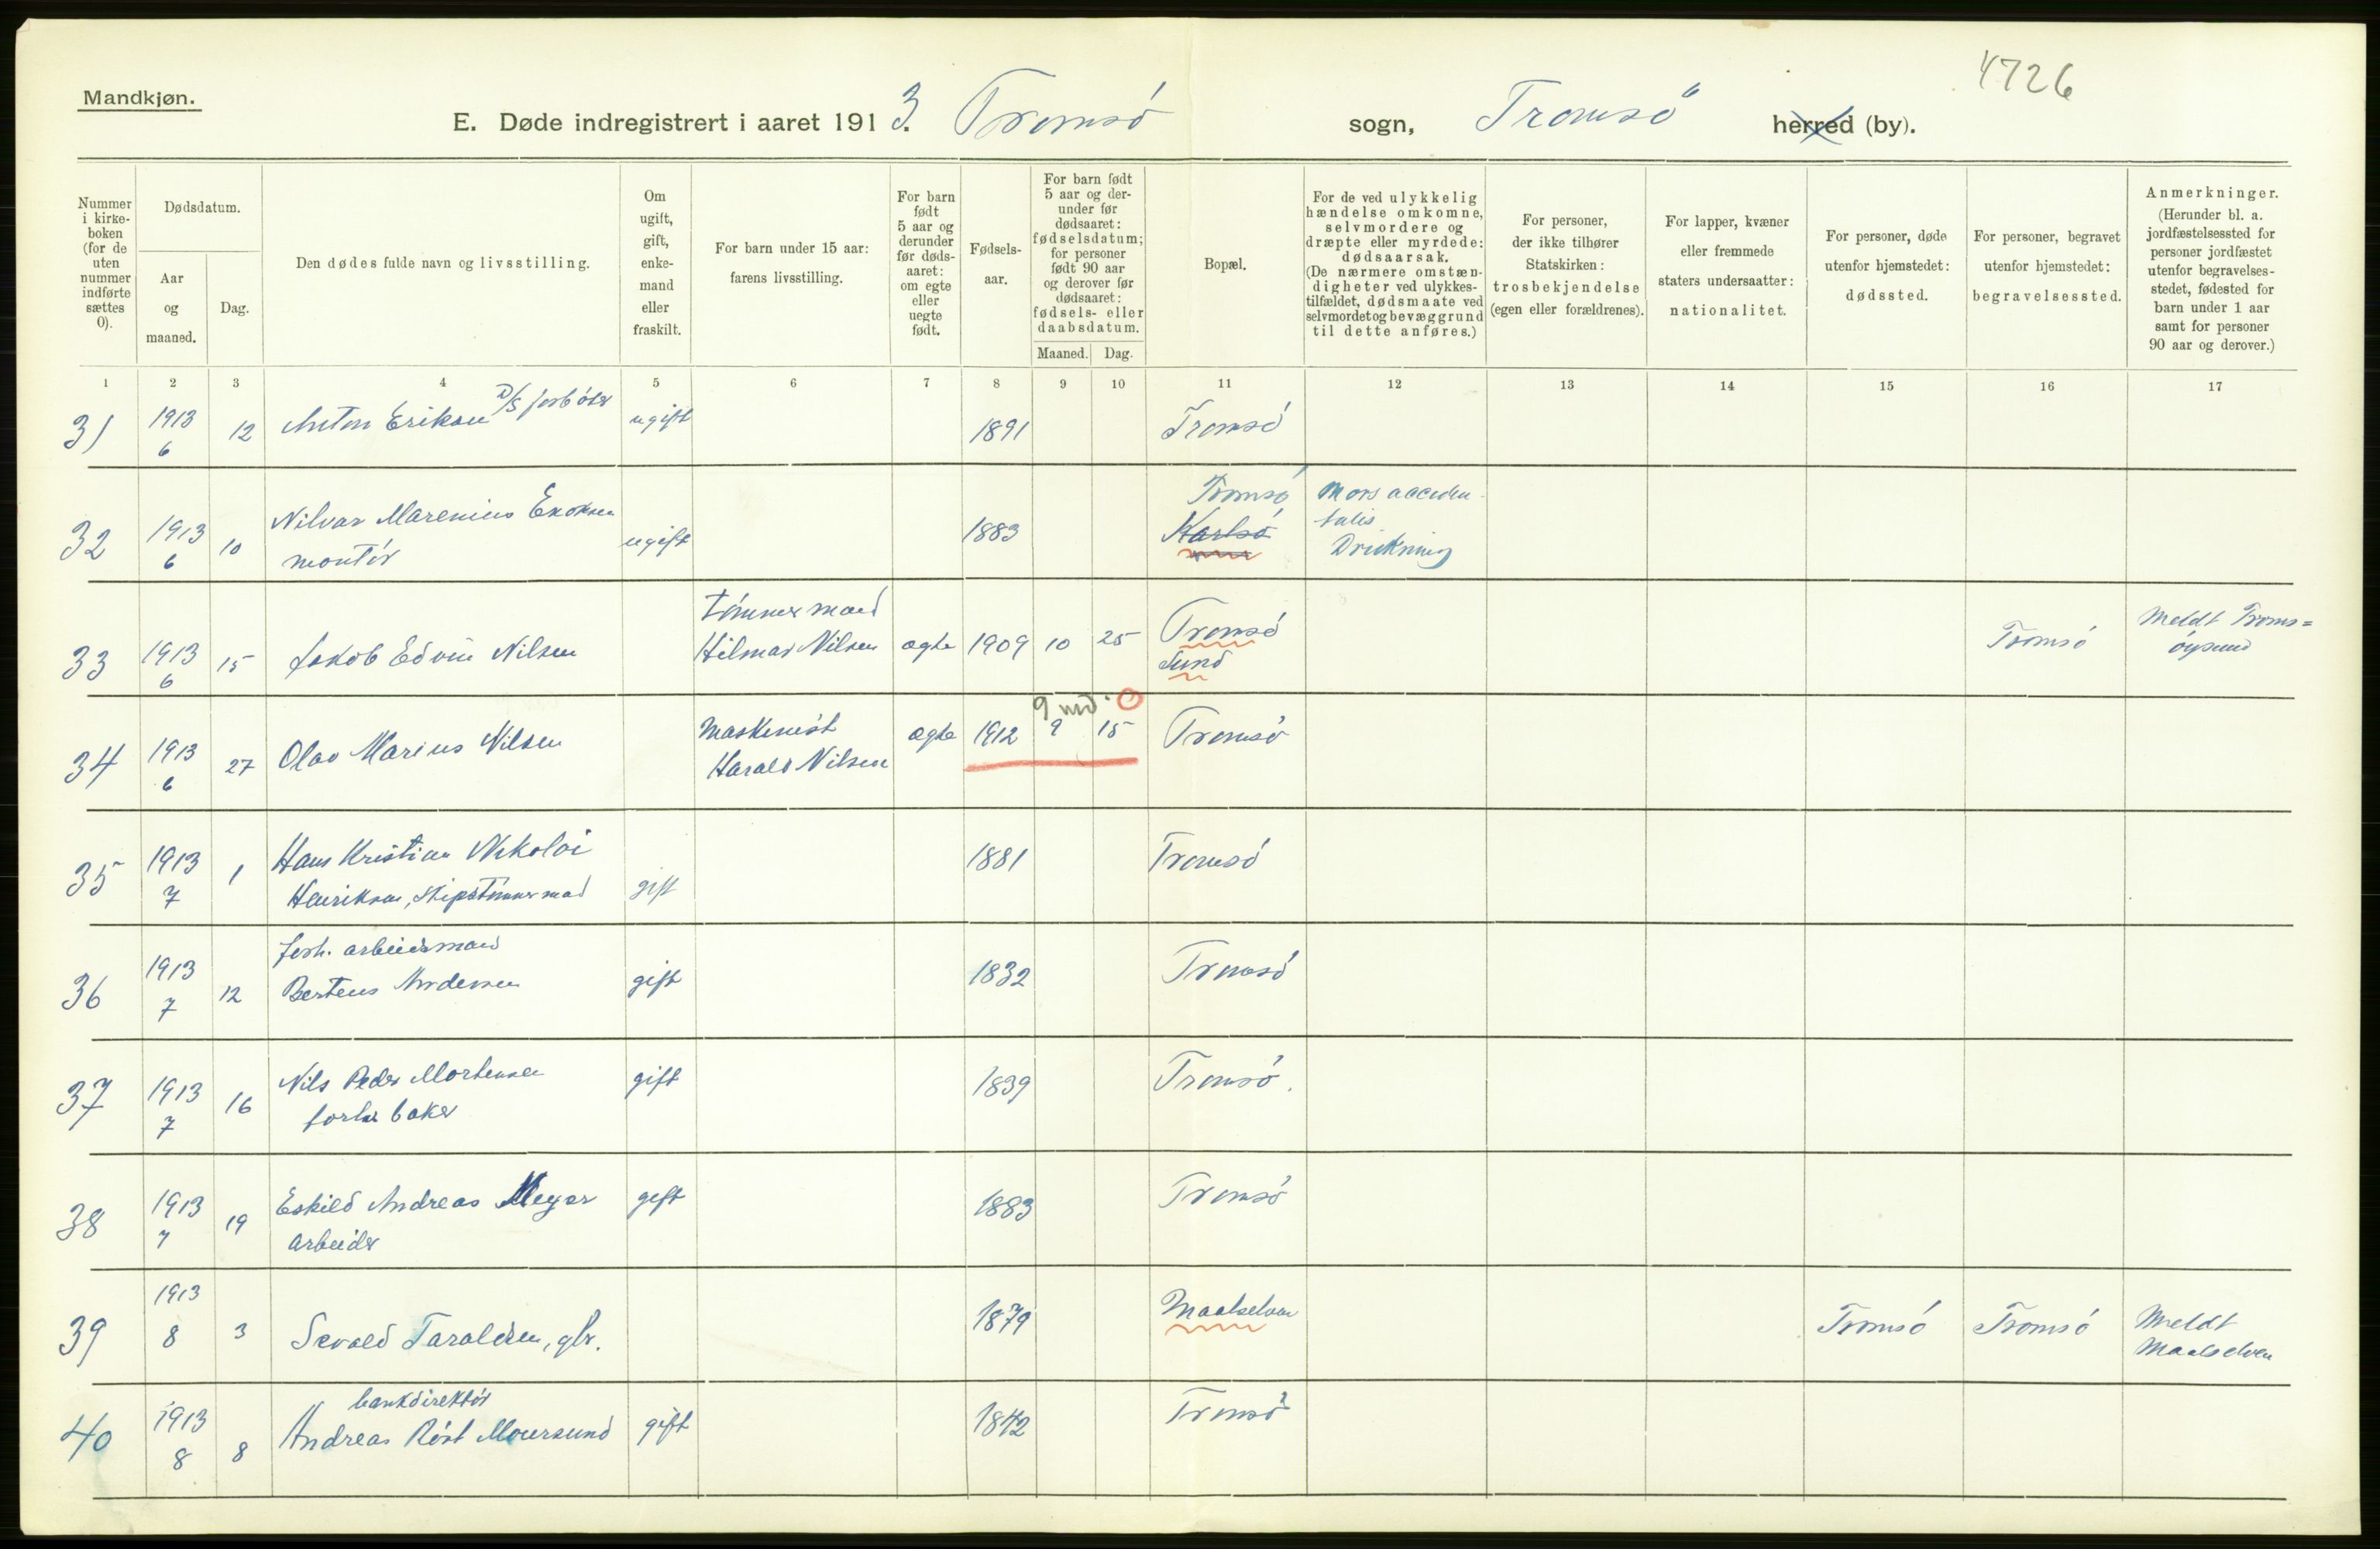 4726
Mandkjøn.
E. Døde indregistrert i aaret 1913. Tromsö sogn, Tromsö herred (by).
Nummer i kirke- boken (for de uten nummer indførte sættes 0).
Dødsdatum.
Aar og maaned.
Dag.
Den dødes fulde navn og livsstilling.
Om ugift, gift, enke- mand eller fraskilt.
For barn under 15 aar: farens livsstilling.
For barn født 5 aar og derunder før døds- aaret: om egte eller uegte født.
Fødsels- aar.
For barn født 5 aar og der- under før dødsaaret: fødselsdatum; for personer født 90 aar og derover før dødsaaret: fødsels- eller daabsdatum.
Maaned. Dag.
Bopæl.
For de ved ulykkelig hændelse omkomne, selvmordere og dræpte eller myrdede: dødsaarsak. (De nærmere omstæn- digheter ved ulykkes- tilfældet, dødsmaate ved selvmordet og bevæggrund til dette anføres.)
For personer, der ikke tilhører Statskirken: trosbekjendelse (egen eller forældrenes).
For lapper, kvæner eller fremmede staters undersaatter: nationalitet.
For personer, døde utenfor hjemstedet: dødssted.
For personer, begravet utenfor hjemstedet: begravelsessted.
Anmerkninger. (Herunder bl. a. jordfæstelsessted for personer jordfæstet utenfor begravelses- stedet, fødested for barn under 1 aar samt for personer 90 aar og derover.)
1 2 3 4 5 6 7 8 9 10 11 12 13 14 15 16 17
31 1913 6 12 Anton Eriksen D/S ugift 1891 Tromsö
32 1913 6 10 Nilvar Marenius ugift 1883 Tromsö Mors acciden-
montör Karlsö talis
Drukning
33 1913 6 15 Jakob Edvin Nilsen tömmermand
Hilmar Nilsen ægte 1909 10 25 Tromsö
Sund Tromsö Meldt Troms=
öysund
9 md. O
34 1913 6 27 Olav Marius Nilsen Maskinist
Harald Nilsen ægte 1912 9 15 Tromsö
35 1913 7 1 Hans Kristian Nikolai
Henriksen, skipstömmermand gift 1881 Tromsö
36 1913 7 12 forh. arbeidsmand
Berteus Andersen gift 1832 Tromsö
37 1913 7 16 Nils Peder Mortensen
forh. baker gift 1839 Tromsö.
38 1913 7 19 Eskild Andreas Meyer
arbeider gift 1883 Tromsö
39 1913 8 3 Sevald Taraldsen, gbr. 1879 Maalselven Tromsö Tromsö Meldt
Maalselven
40 1913 8 8 bankdirektör
Andreas Röst Moursund gift 1842 Tromsö